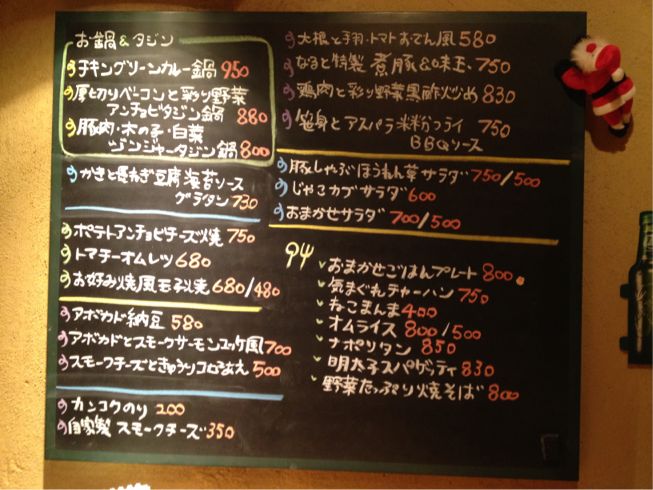 お鍋&タジン
チキングリーンカレー鍋 950
厚切りベーコンと彩り野菜
アンチョビタジン鍋 880
豚肉・木の子・白菜
ジンジャータジン鍋 800
かきと長ねぎ豆腐海苔ソース
グラタン 730
ポテトアンチョビチーズ焼 750
トマチーオムレツ 680
お好み焼風玉子焼 680/480
アボカド納豆 580
アボカドとスモークサーモンユッケ風 700
スモークチーズときゅうりコロコロあえ 500
カンコクのり 200
自家製 スモークチーズ 350
大根と手羽・トマトおでん風 580
なると特製 煮豚&味玉 750
鶏肉と彩り野菜黒酢炒め 830
笹身とアスパラ米粉フライ 750
BBQソース
豚しゃぶほうれん草サラダ 750/500
じゃこカブサラダ 600
おまかせサラダ 700/500
おまかせごはんプレート 800
気まぐれチャーハン 750
ねこまんま 400
オムライス 800/500
ナポリタン 850
明太子スパゲッティ 830
野菜たっぷり焼そば 800